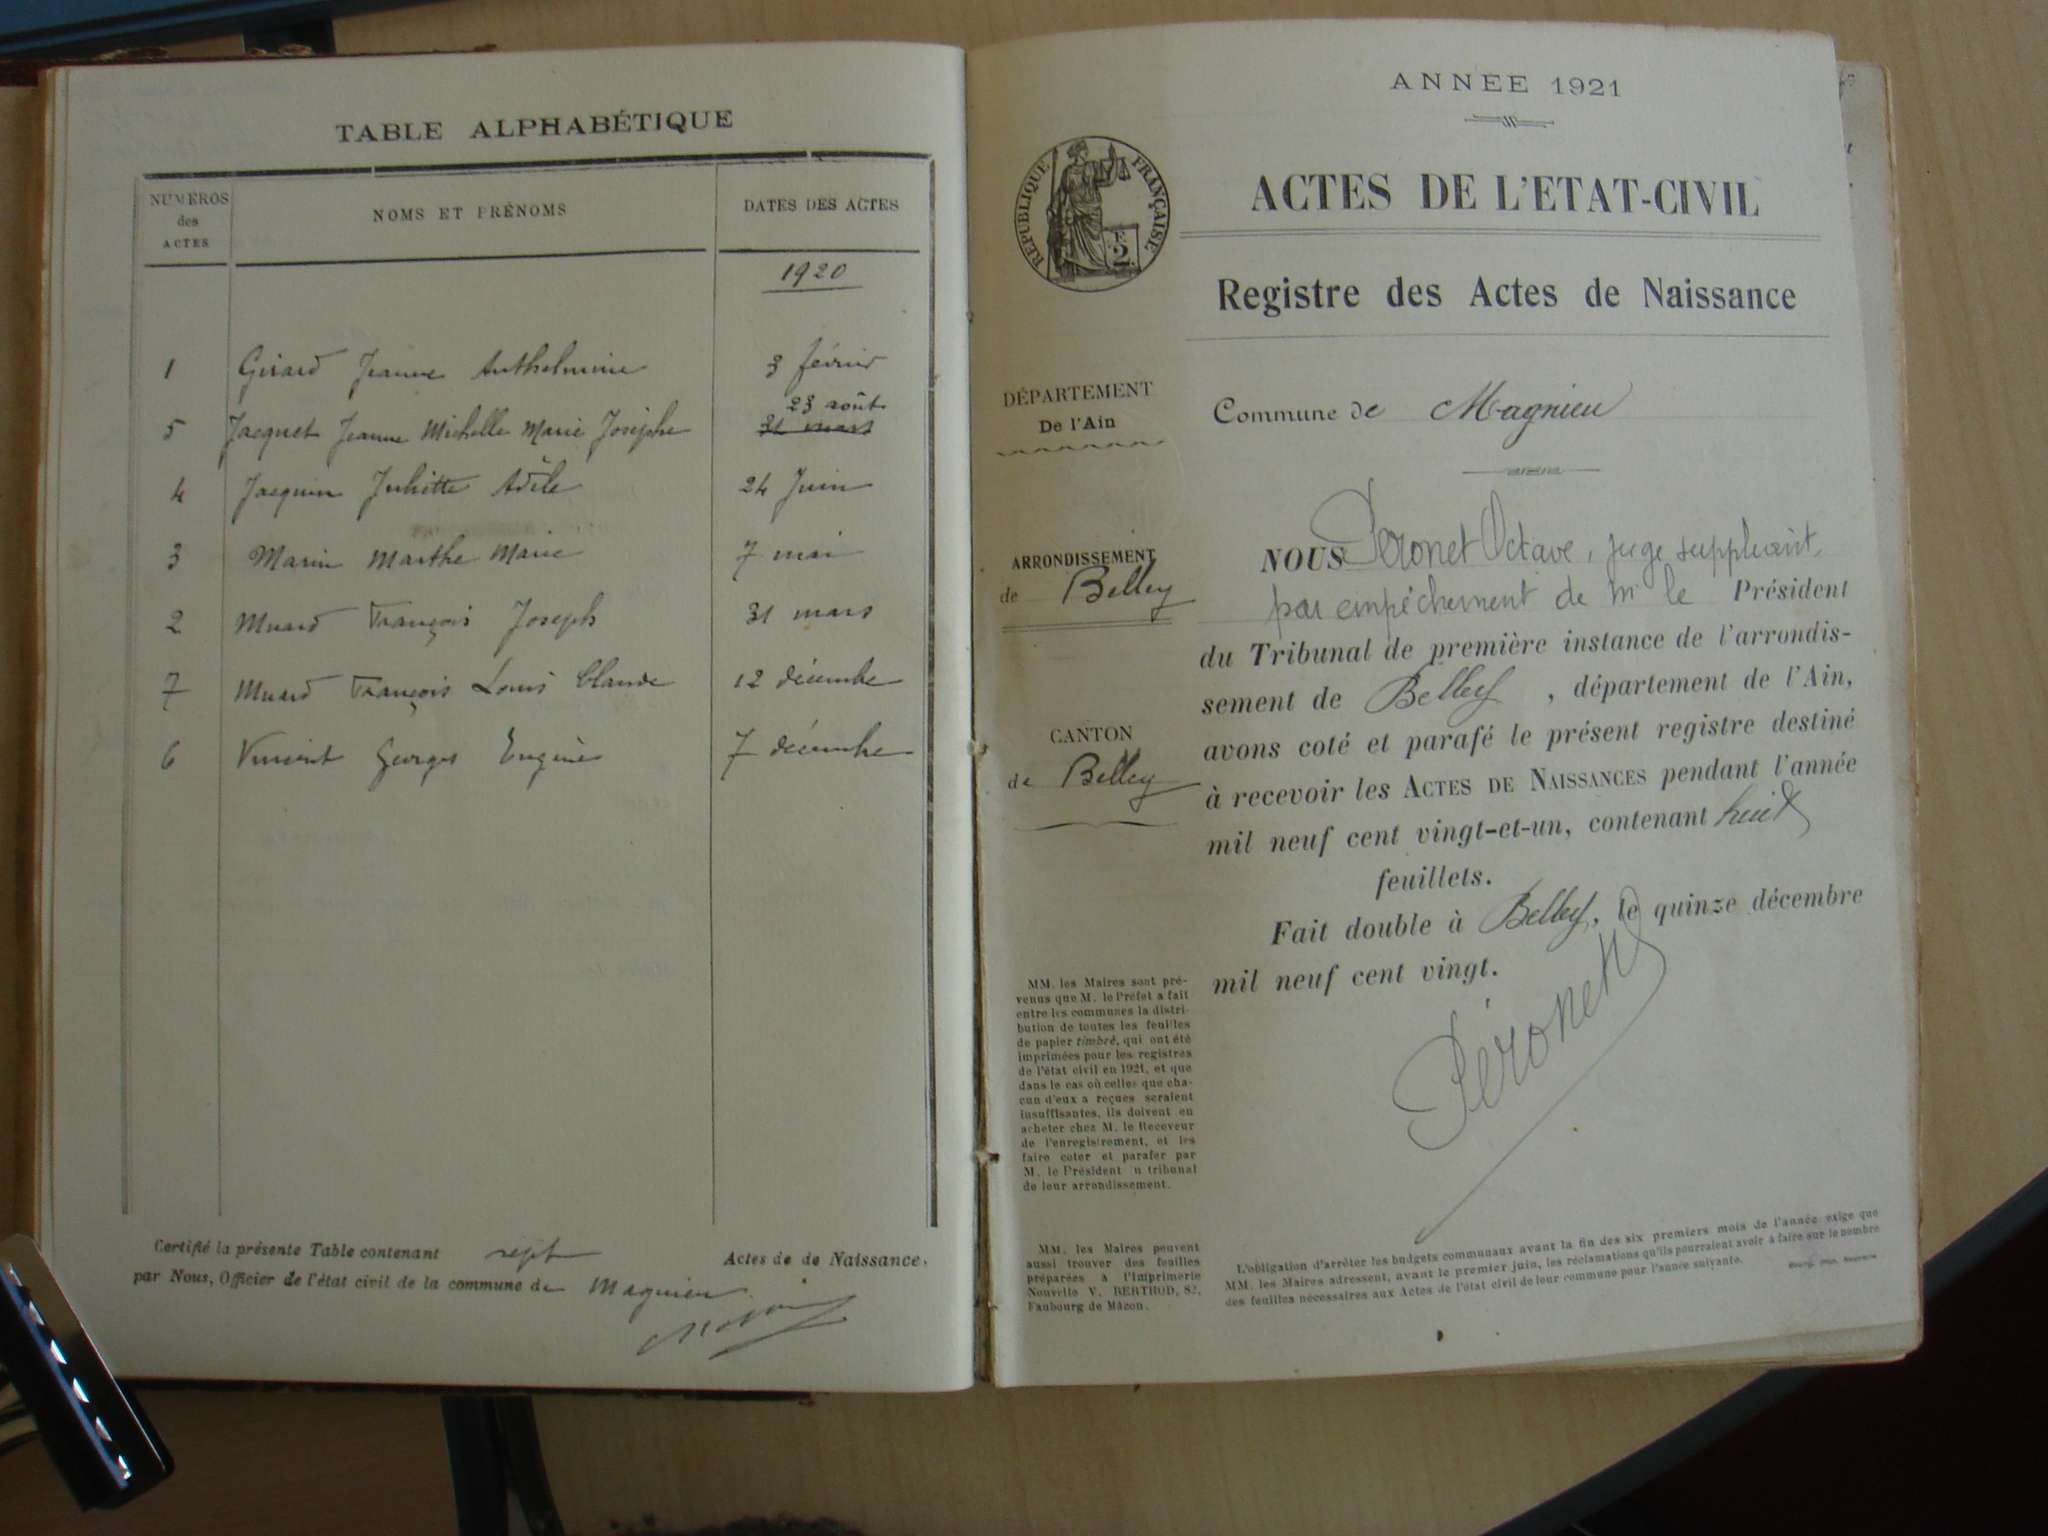 TABLE ALPHABÉTIQUE
NUMÉROS des ACTES NOMS ET PRÉNOMS DATES DES ACTES
1920
1 Girard Jeanne Anthelmine 3 février
23 août
5 Jacquet Jeanne Michelle Marie Josèphe 31 mars
4 Jacquin Juliette Adèle 24 Juin
3 Marin Marthe Marie 7 mai
2 Muard François Joseph 31 mars
7 Muard François Louis Claude 12 décembre
6 Vincent Georges Eugène 7 décembre
Certifié la présente Table contenant sept Actes de de Naissance,
par Nous, Officier de l'état civil de la commune de Magnieu
ANNÉE 1921
RÉPUBLIQUE FRANÇAISE
2
ACTES DE L'ETAT-CIVIL
Registre des Actes de Naissance
DÉPARTEMENT
De l'Ain
Commune de Magnieu
ARRONDISSEMENT
de Belley
CANTON
de Belley
NOUS Péronet Octave, juge suppléant,
par empêchement de Mr le Président
du Tribunal de première instance de l'arrondis-
sement de Belley, département de l'Ain,
avons coté et parafé le présent registre destiné
à recevoir les ACTES DE NAISSANCES pendant l'année
mil neuf cent vingt-et-un, contenant huit
feuillets.
Fait double à Belley, le quinze décembre
mil neuf cent vingt.
Péronet
MM. les Maires sont pré-
venus que M. le Préfet a fait
entre les communes la distri-
bution de toutes les feuilles
de papier timbré, qui ont été
imprimées pour les registres
de l'état civil en 1921, et que
dans le cas où celles que cha-
cun d'eux a reçues seraient
insuffisantes, ils doivent en
acheter chez M. le Receveur
de l'enregistrement, et les
faire coter et parafer par
M. le Président u tribunal
de leur arrondissement.
MM. les Maires peuvent
aussi trouver des feuilles
préparées à l'Imprimerie
Nouvelle V. BERTHOD, 82,
Faubourg de Mâcon.
L'obligation d'arrêter les budgets communaux avant la fin des six premiers mois de l'année exige que
MM. les Maires adressent, avant le premier juin, les réclamations qu'ils pourraient avoir à faire sur le nombre
des feuilles nécessaires aux Actes de l'état civil de leur commune pour l'année suivante.